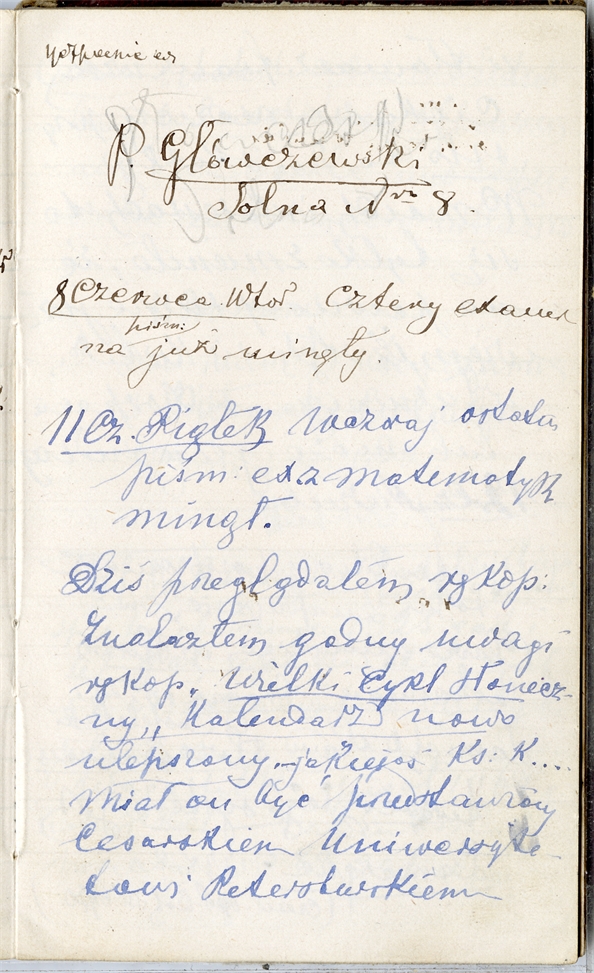 P. Główczewski
Solna Nro 8.
8 Czerwca Wtor Cztery exami
piśm:
na już minęły
11 Cz. Piątek Wczoraj ostatni
piśm: ex. z matematyk
minął.
Dziś przeglądałem rękop:
Znalazłem godny uwagi
rękop. „Wielki Cykl Słonecz-
ny„ Kalendarz nowo
ulepszony. jakiegoś Ks: K....
Miał on być przedstawiony
Cesarskiem Uniwersyte-
towi Petersburskiemu